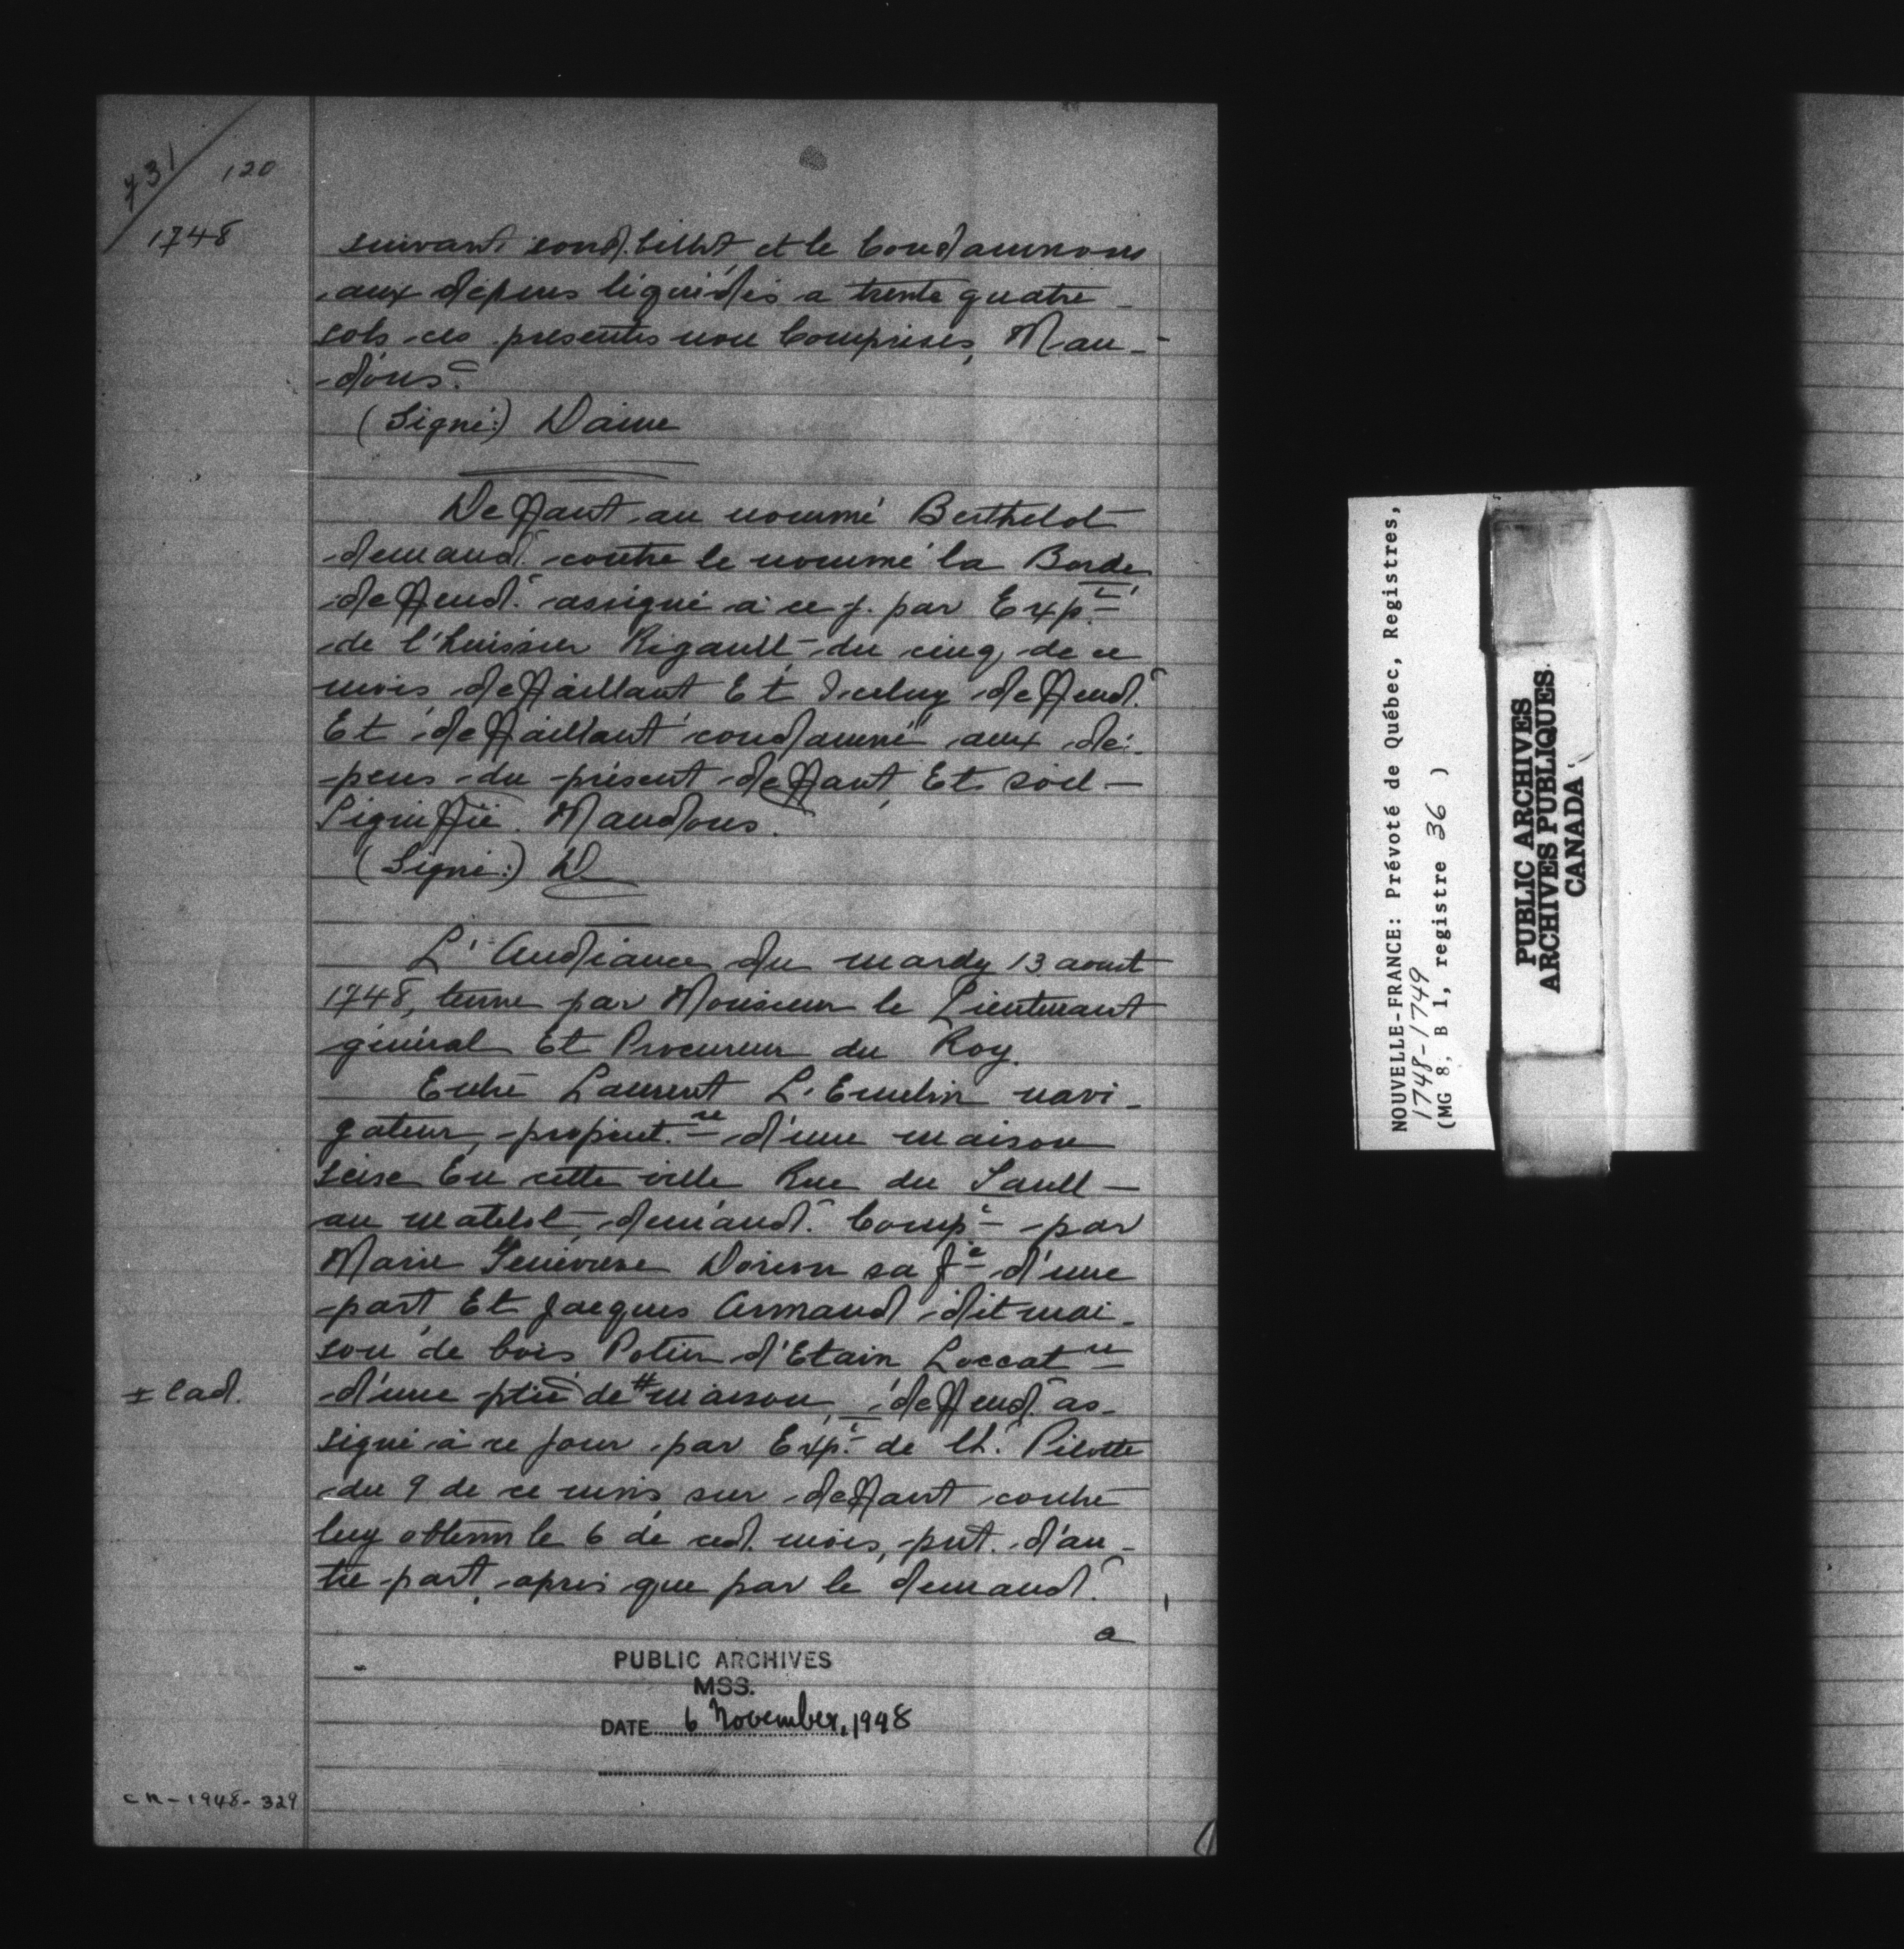 731/ 120
1748
suivant sond. billet et le Condamnons
aux dépens liquidés a trente quatre
sols ces presentes non Comprises, Man-
-dons.
(Signé:) Daine
Deffaut au nommé Berthelot
demand. contre le nommé la Borde
deffend. assigné à ce j. par Exp.t
de l'huissier Rigault du cinq de ce
mois deffaillant Et Iceluy deffend.
Et deffaillant condamné aux dé-
pens du présent deffaut, Et soit
Signiffié. Mandons.
(Signé:) D
L'Audiance du mardy 13 aoust
1748, tenue par Monsieur le Lieutenant
général Et Procureur du Roy.
Entre Laurent L'Emelin navi-
gateur, propriet.re d'une maison
seise En cette ville Rue du Sault
au matelot demand. Comp.t par
Marie Genevieve Dorion sa f.e d'une
part Et Jacques Armand dit mai-
son de bois Potier d'Etain Loccat.re
± lad.
d'une ptie de # maison, deffend. as-
signé à ce jour par Exp.t de lh. Pilotte
du 9 de ce mois sur deffaut contre
luy obtenu le 6 de ced. mois, prt. d'au-
tre part, apres que par le demand.
a
PUBLIC ARCHIVES
MSS.
DATE 6 November, 1948
CN-1948-329
NOUVELLE-FRANCE: Prévoté de Québec, Registres,
1748-1749
(MG 8, B 1, registre 36 )
PUBLIC ARCHIVES
ARCHIVES PUBLIQUES
CANADA